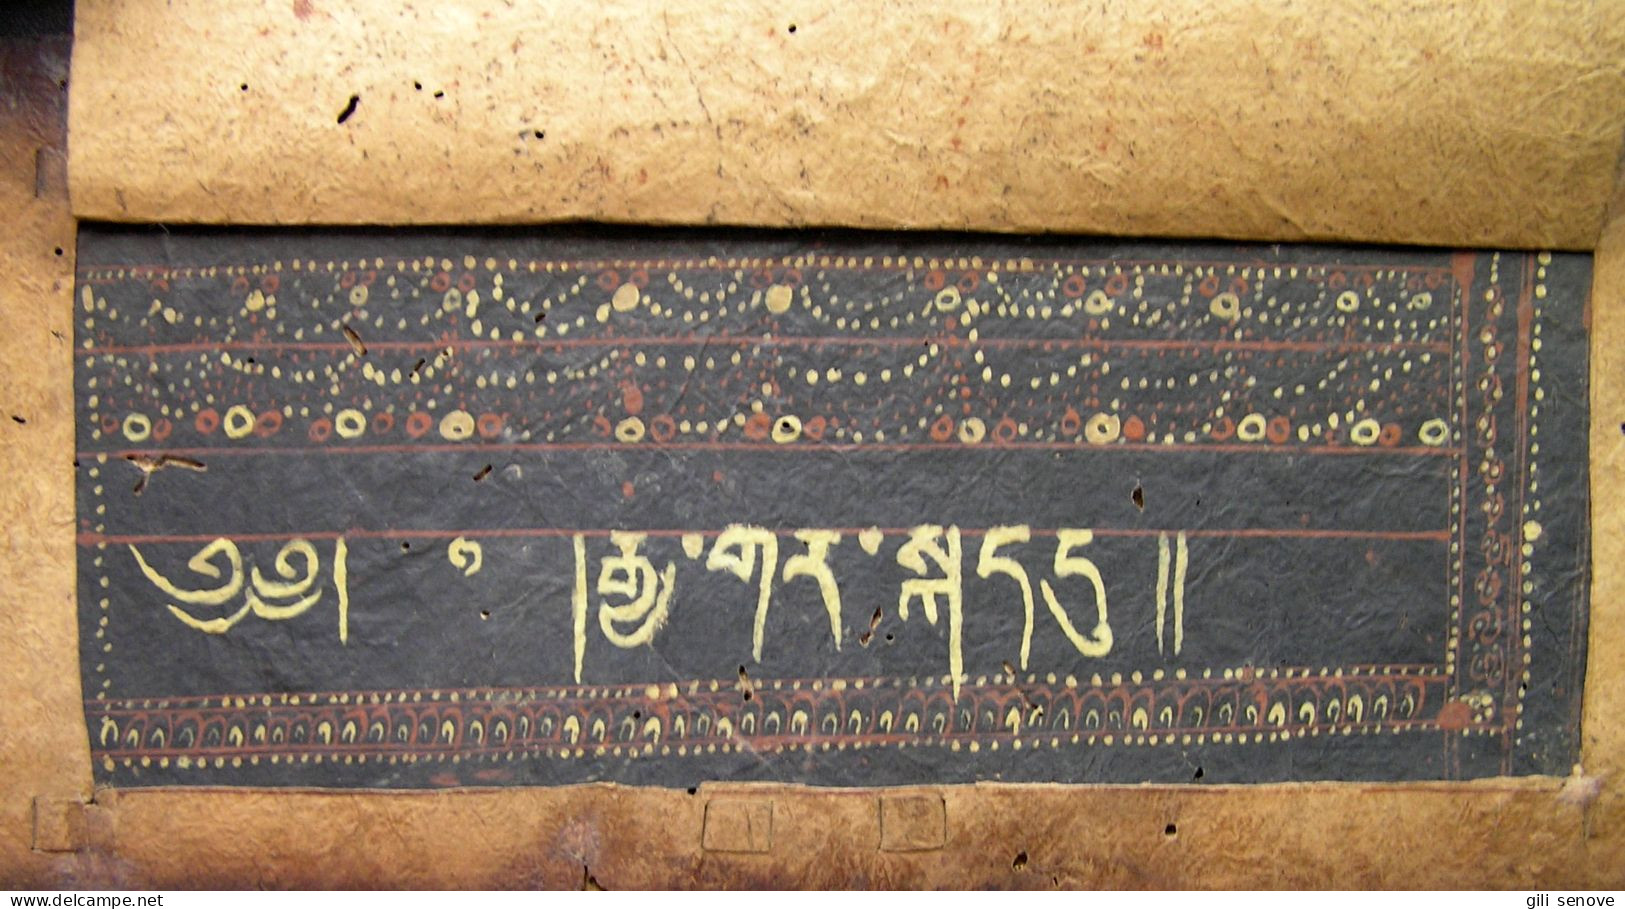 ༄༅། ། །རྒྱ་གར་སྐད་དུ༎
www.delcampe.net
gili senove